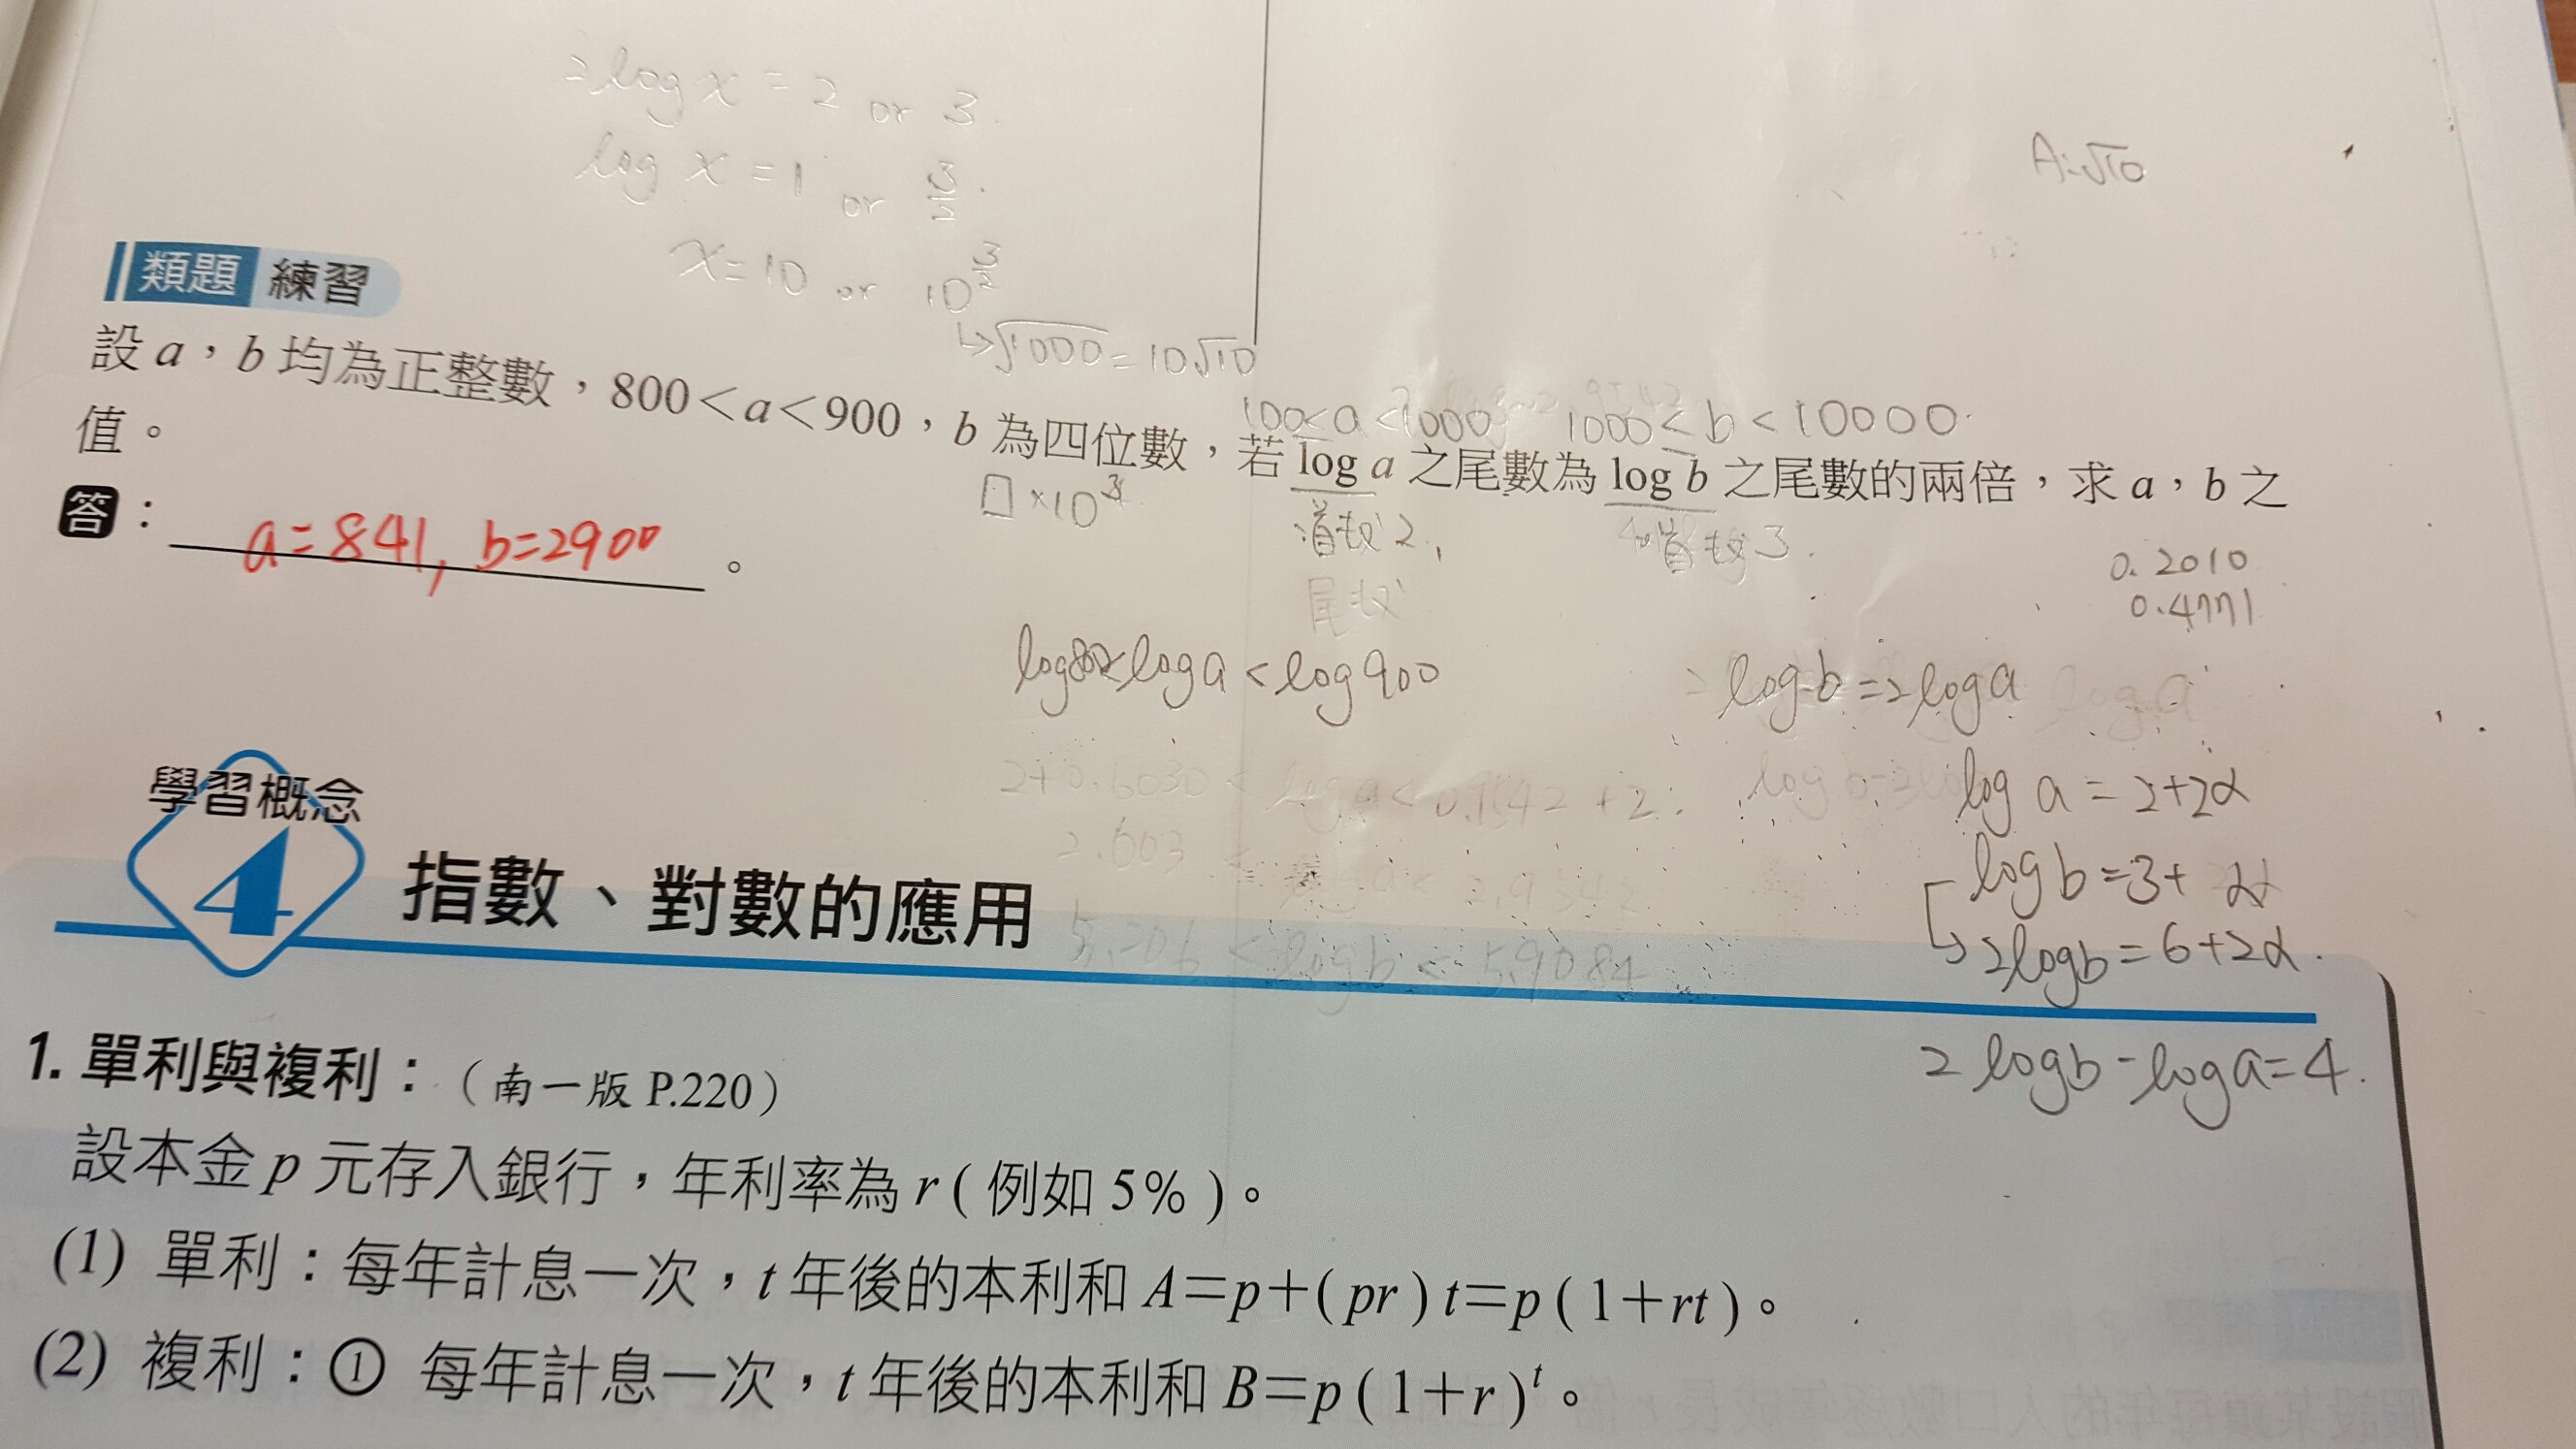 2log x = 2 or 3.
log x = 1 or 3/2.
x = 10 or 10^(3/2)
↳ √1000 = 10√10
A:√10
類題 練習
100<a<1000 1000≤b<10000.
設 a，b 均為正整數，800＜a＜900，b 為四位數，若 log a 之尾數為 log b 之尾數的兩倍，求 a，b 之
值。
□×10³
首數2,
尾數
首數3.
答：a=841, b=2900。
0.2010
0.4771
log800<log a<log900
log b=2log a
log a
2+0.6030< log a< 0.9542+2.
log a = 2+2α
2.603 <
log b=3+ α
↳ 2log b=6+2α.
5.206 < log b < 5.9084
2 log b - log a=4.
學習概念
4 指數、對數的應用
1. 單利與複利：（南一版 P.220）
設本金 p 元存入銀行，年利率為 r ( 例如 5% )。
(1) 單利：每年計息一次，t 年後的本利和 A＝p＋( pr ) t＝p ( 1＋rt )。
(2) 複利：① 每年計息一次，t 年後的本利和 B＝p ( 1＋r )^t。